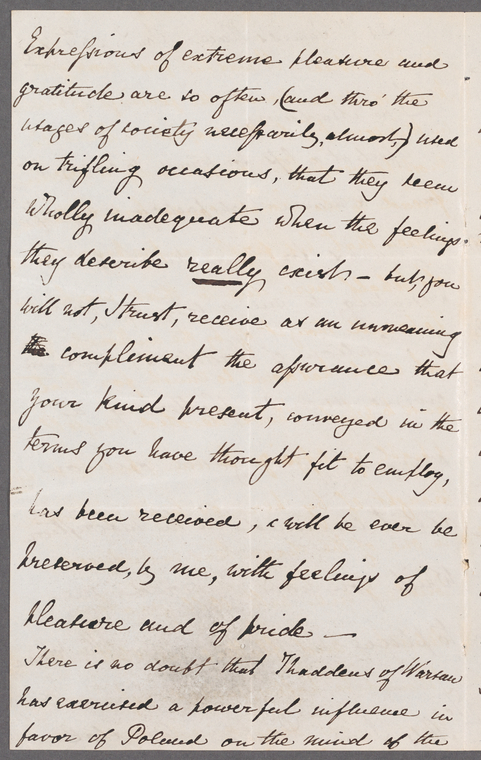 Expressions of extreme pleasure and
gratitude are so often, (and thro' the
usages of society necessarily, almost,) used
on trifling occasions, that they seem
wholly inadequate when the feelings
they describe really exist – but, you
will not, I trust, receive as an unmeaning
compliment the assurance that
your kind present, conveyed in the
terms you have thought fit to employ,
has been received, & will be ever be
preserved, by me, with feelings of
pleasure and of pride –
There is no doubt that Thaddeus of Warsaw
has exercised a powerful influence in
favor of Poland on the mind of the